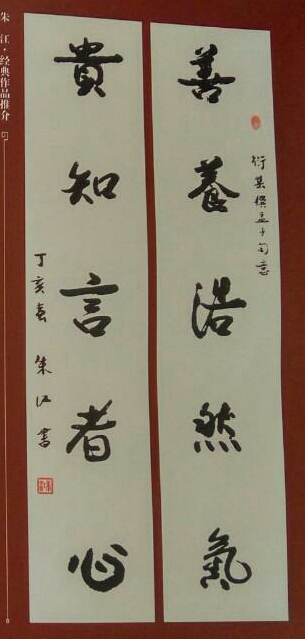 善養浩然氣
衍其撰孟子句意
貴知言者心
丁亥春 朱江書
朱江·经典作品推介